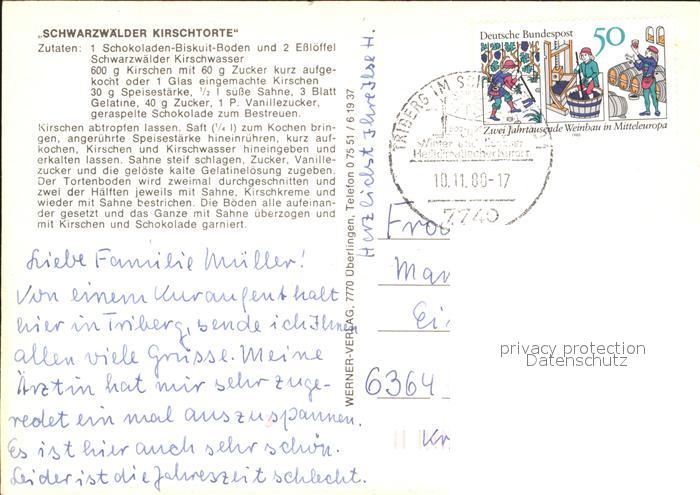 „SCHWARZWÄLDER KIRSCHTORTE“
Zutaten: 1 Schokoladen-Biskuit-Boden und 2 Eßlöffel
Schwarzwälder Kirschwasser
600 g Kirschen mit 60 g Zucker kurz aufge-
kocht oder 1 Glas eingemachte Kirschen
30 g Speisestärke, ½ l süße Sahne, 3 Blatt
Gelatine, 40 g Zucker, 1 P. Vanillezucker,
geraspelte Schokolade zum Bestreuen.
Kirschen abtropfen lassen. Saft (¼ l) zum Kochen brin-
gen, angerührte Speisestärke hineinrühren, kurz auf-
kochen, Kirschen und Kirschwasser hineingeben und
erkalten lassen. Sahne steif schlagen, Zucker, Vanille-
zucker und die gelöste kalte Gelatinelösung zugeben.
Der Tortenboden wird zweimal durchgeschnitten und
zwei der Hälften jeweils mit Sahne, Kirschkreme und
wieder mit Sahne bestrichen. Die Böden alle aufeinan-
der gesetzt und das Ganze mit Sahne überzogen und
mit Kirschen und Schokolade garniert.
Liebe Familie Müller!
Von einem Kuraufenthalt
hier in Triberg, sende ich Ihnen
allen viele Grüsse. Meine
Ärztin hat mir sehr zuge-
redet ein mal auszuspannen.
Es ist hier auch sehr schön.
Leider ist die Jahreszeit schlecht.
Herzlichst Ihre Ilse H.
WERNER-VERLAG, 7770 Überlingen, Telefon 0 75 51 / 6 19 37
Deutsche Bundespost 50
Zwei Jahrtausende Weinbau in Mitteleuropa
1980
TRIBERG IM
Heilklimatischer Kurort
10.11.80-17
7740
Mar
Ei
6364
Kr
privacy protection
Datenschutz